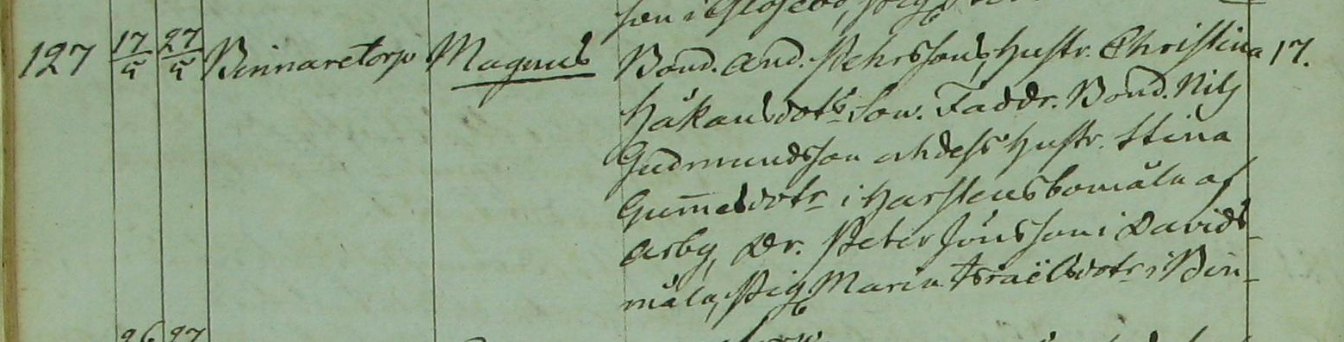 127 17/5 27/5 Binnaretorp Magnus Bond. And. Pehrssons, hustr. Christina 17.
Håkansdotrs Son. Faddr. Bond. Nils
Gudmundsson och dess hustr. Stina
Gummesdotr i Harstensbomåla af
Asby, Dr. Peter Jönsson i Davids-
måla, Pig. Maria Israëlsdotr i Bin-
26 27